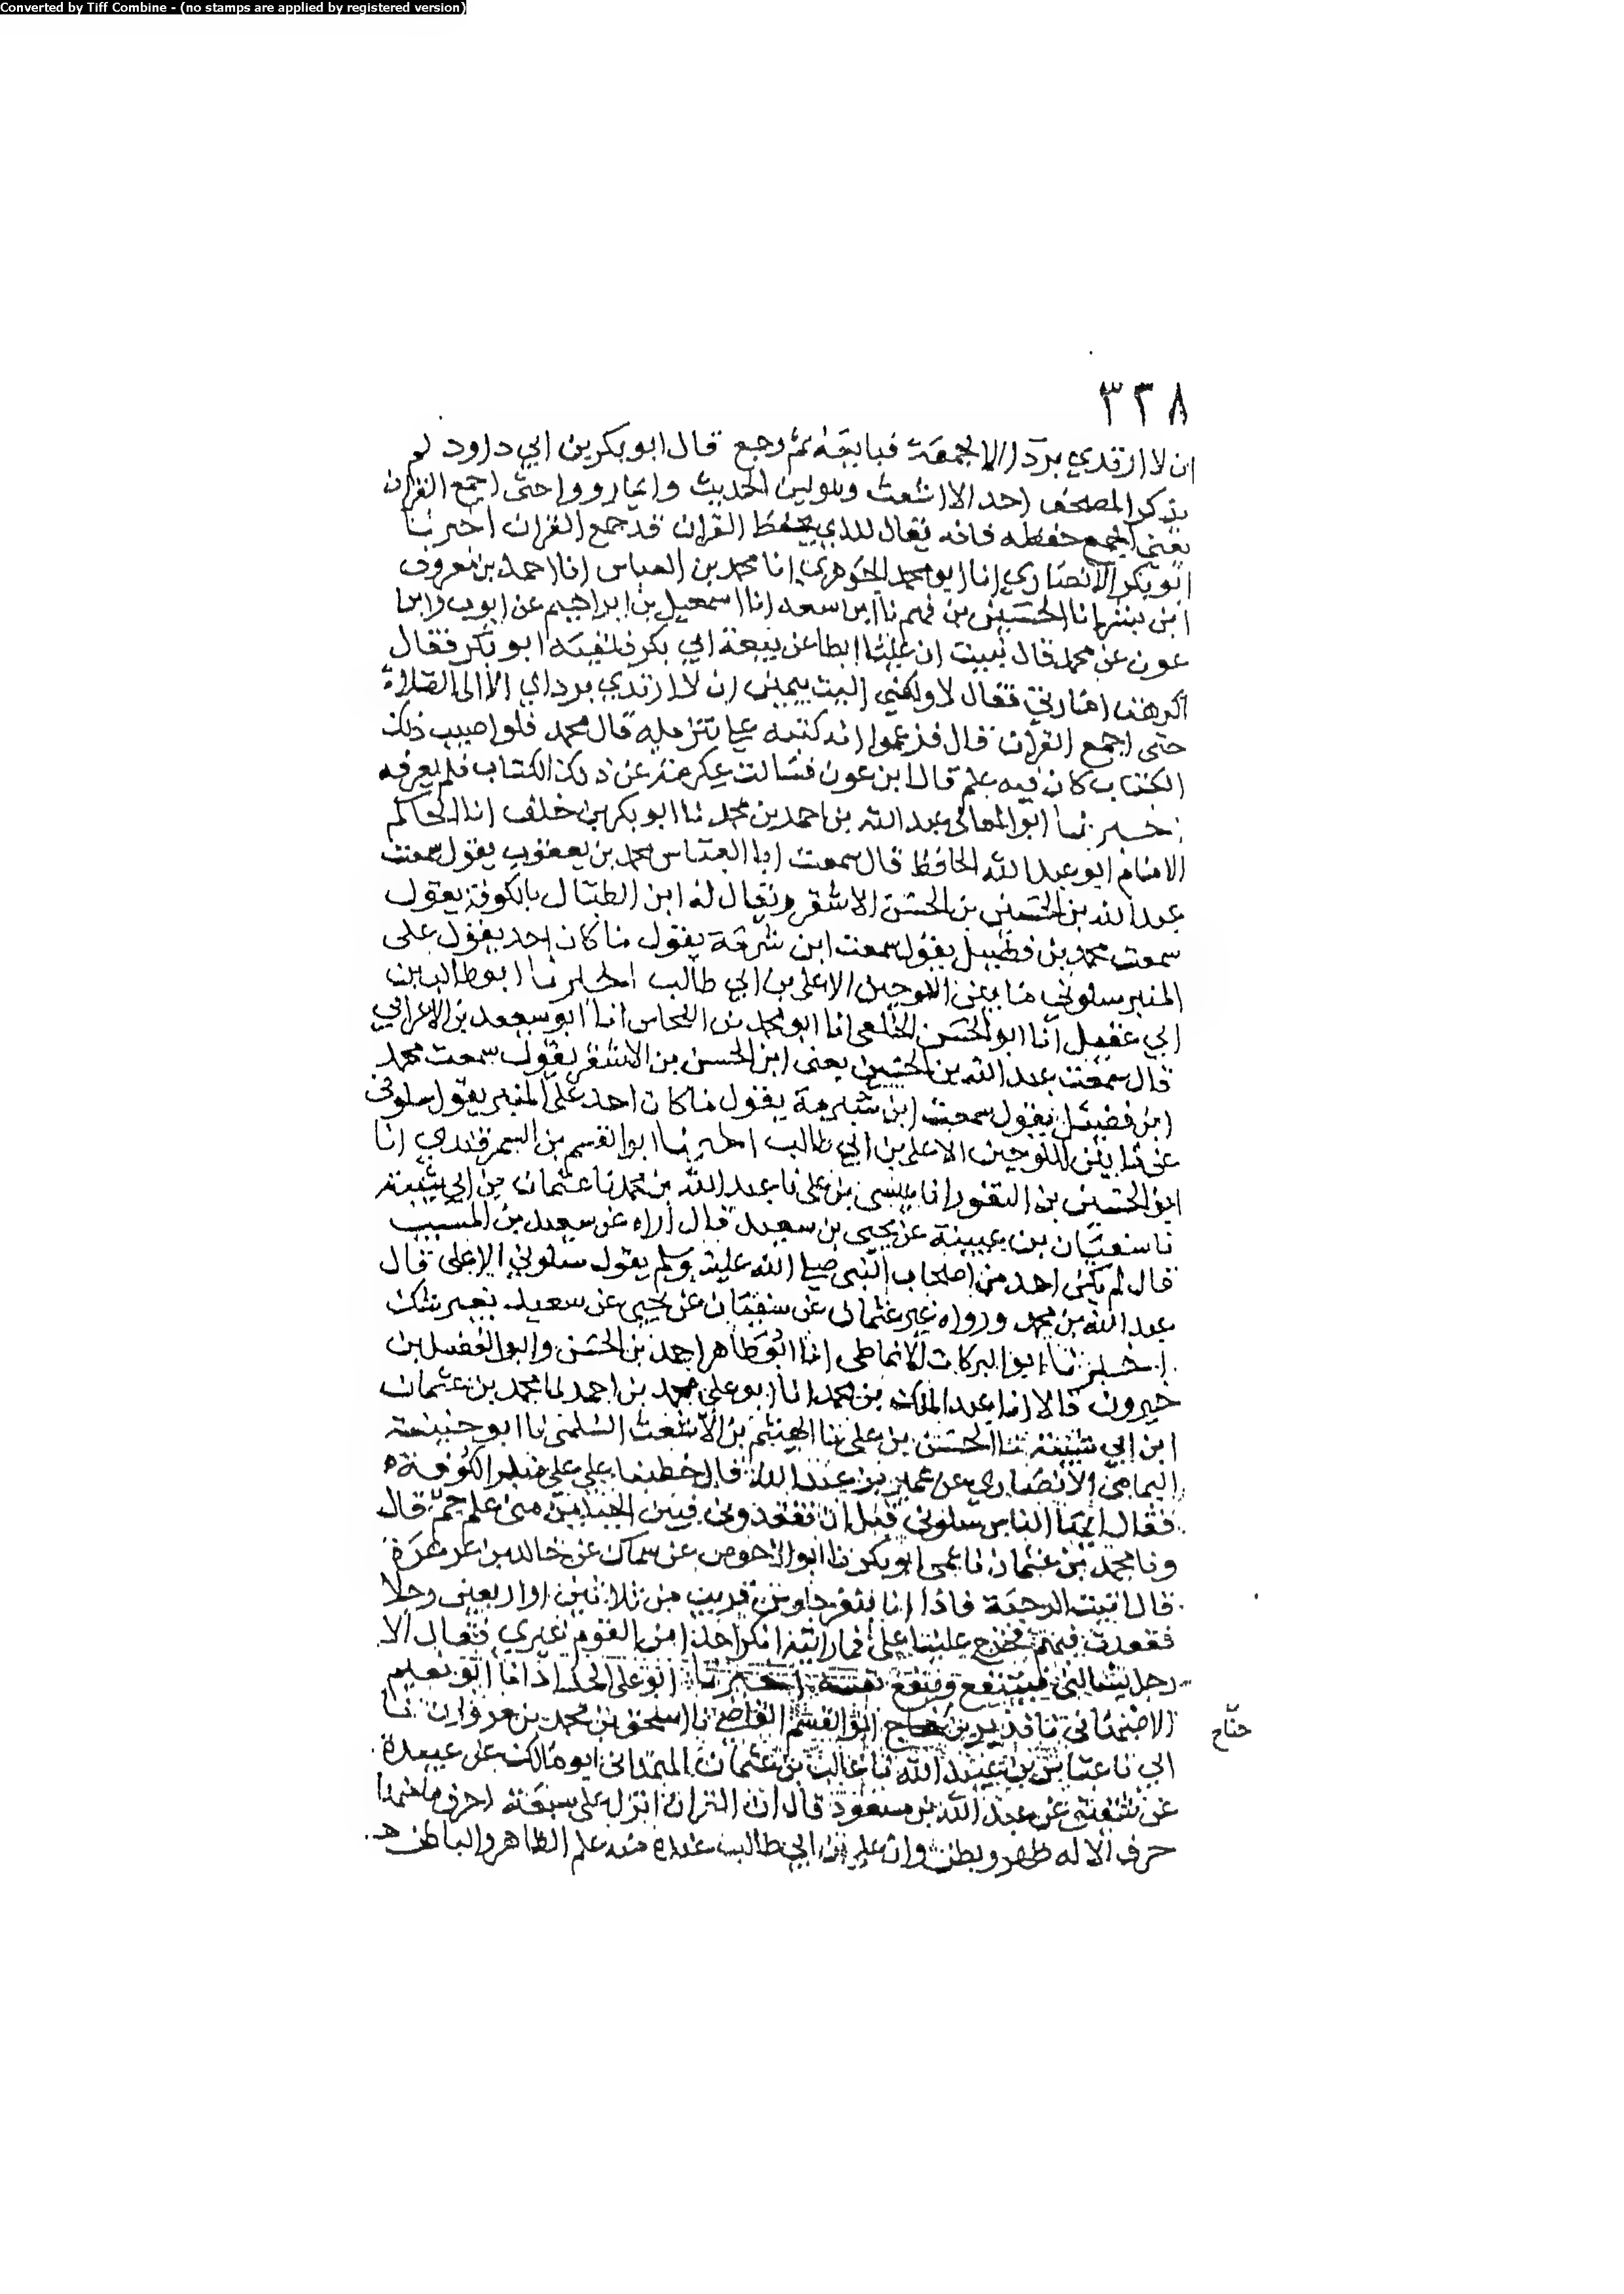 Converted by Tiff Combine - (no stamps are applied by registered version)
٣٣٨
ان لا ارتدي بردا الا لجمعة فبايعه ثم رجع قال ابو بكر بن ابي داود لم
يذكر المصحف احد الا اشعث وهو لين الحديث وانما رووا حتى اجمع القران
يعني اجمع حفظه فانه يقال للذي يحفظ القران قد جمع القران اخبرنا
ابو بكر الانصاري انا ابو محمد الجوهري انا محمد بن العباس انا احمد بن معروف
ابن بشر انا الحسين بن فهم نا ابن سعد انا اسمعيل بن ابراهيم عن ايوب وابن
عون عن محمد قال نبيت ان عليا ابطا عن بيعة ابي بكر فلقيه ابو بكر فقال
اكرهت امارتي فقال لا ولكني اليت بيمين ان لا ارتدي برداي الا الى الصلاة
حتى اجمع القران قال فزعموا انه كتبه على تنزيله قال محمد فلو اصيب ذلك
الكتاب كان فيه علم قال ابن عون فسالت عكرمة عن ذلك الكتاب فلم يعرفه
اخبرنا ابو المعالي عبد الله بن احمد بن محمد نا ابو بكر بن خلف انا الحاكم
الامام ابو عبد الله الحافظ قال سمعت ابا العباس محمد بن يعقوب يقول سمعت
عبد الله بن الحسين بن الحسن الاشقر ويقال له ابن الطبال بالكوفة يقول
سمعت محمد بن فضيل يقول سمعت ابن شبرمة يقول ما كان احد يقول على
المنبر سلوني ما بين اللوحين الا علي بن ابي طالب اخبرنا ابو طالب بن
ابي عقيل انا ابو الحسن الخلعي انا ابو محمد بن النحاس انا ابو سعيد بن الاعرابي
قال سمعت عبد الله بن الحسين يعني ابن الحسن بن الاشقر يقول سمعت محمد
ابن فضيل يقول سمعت ابن شبرمة يقول ما كان احد على المنبر يقول سلوني
عن ما بين اللوحين الا علي بن ابي طالب اخبرنا ابو القسم بن السمرقندي انا
ابو الحسين بن النقور انا عيسى بن علي نا عبد الله بن محمد نا عثمان بن ابي شيبة
نا سفيان بن عيينة عن يحيى بن سعيد قال اراه عن سعيد بن المسيب
قال لم يكن احد من اصحاب النبي صلى الله عليه وسلم يقول سلوني الا علي قال
عبد الله بن محمد ورواه غير عثمان عن سفيان عن يحيى عن سعيد بغير شك
اخبرنا ابو البركات الانماطي انا ابو طاهر احمد بن الحسن وابو الفضل بن
خيرون قالا انا عبد الملك بن محمد انا ابو علي محمد بن احمد نا محمد بن عثمان
ابن ابي شيبة نا الحسن بن علي نا الهيثم بن الاشعث السلمي نا ابو حنيفة
اليمامي الانصاري عن عمير بن عبد الله قال خطبنا علي على منبر الكوفة
فقال ايها الناس سلوني قبل ان تفقدوني فبين الجنبين مني علم جم قال
ونا محمد بن عثمان نا عمي ابو بكر نا ابو الاحوص عن سماك عن خالد بن عرعرة
قال اتيت الرحبة فاذا انا بنفر جلوس قريب من ثلاثين او اربعين رجلا
فقعدت فيهم فخرج علينا علي فما رايته انكر احدا من القوم غيري فقال الا
رجل يسالني فينتفع وينفع نفسه اخبرنا ابو علي الحداد انا ابو نعيم
الاصبهاني نا نذير بن جناح ابو القسم القاضي نا اسحق بن محمد بن مروان نا
جناح
ابي نا عباس بن عبيد الله نا غالب بن عثمان الهمداني ابو مالك عن عبيدة
عن شقيق عن عبد الله بن مسعود قال ان القران انزل على سبعة احرف ما منها
حرف الا له ظهر وبطن وان علي بن ابي طالب عنده منه علم الظاهر والباطن